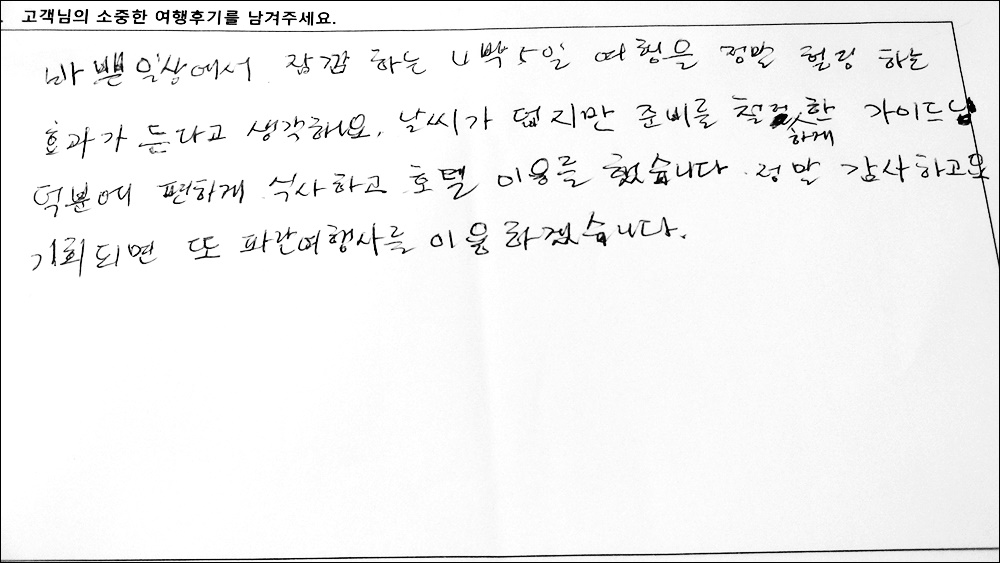 . 고객님의 소중한 여행후기를 남겨주세요.
바쁜 일상에서 잠깐 하는 4박 5일 여행을 정말 힐링 하는
효과가 든다고 생각해요. 날씨가 덥지만 준비를 철저하게 한 가이드님
덕분에 편하게 식사하고 호텔 이용를 했습니다. 정말 감사하고요
기회되면 또 파란여행사를 이용하겠습니다.